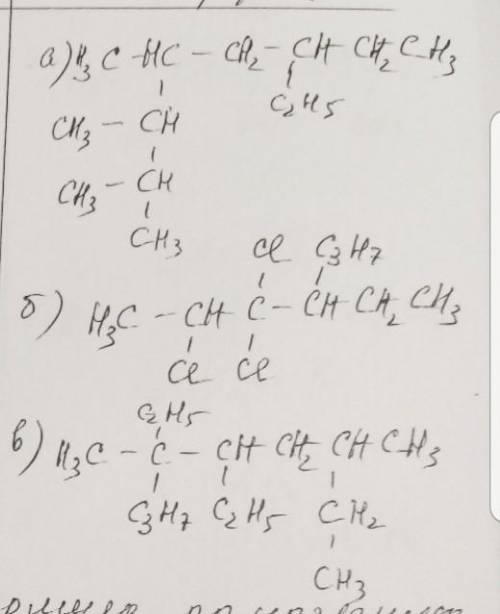 а) H₃C - HC - CH₂ - CH CH₂ CH₃
C₂H₅
CH₃ - CH
CH₃ - CH
CH₃
Cl C₃H₇
б) H₃C - CH C - CH CH₂ CH₃
Cl Cl
C₂H₅
в) H₃C - C - CH CH₂ CH CH₃
C₃H₇ C₂H₅ CH₂
CH₃